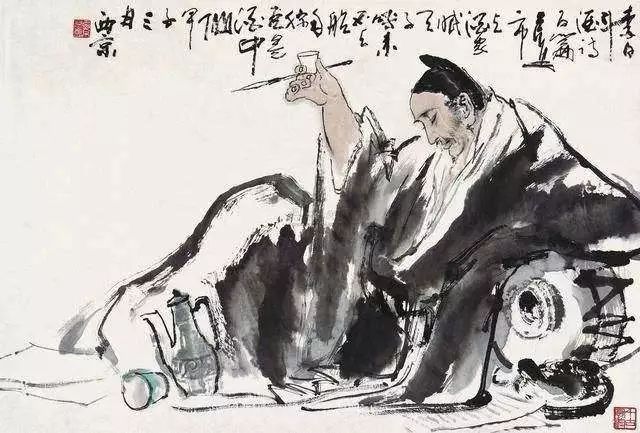 李白
斗
酒诗
百篇
长安
市
上
酒家
眠
天
子
呼来
不上
船
自称
臣是
酒中
仙
甲
子
三
月
西京